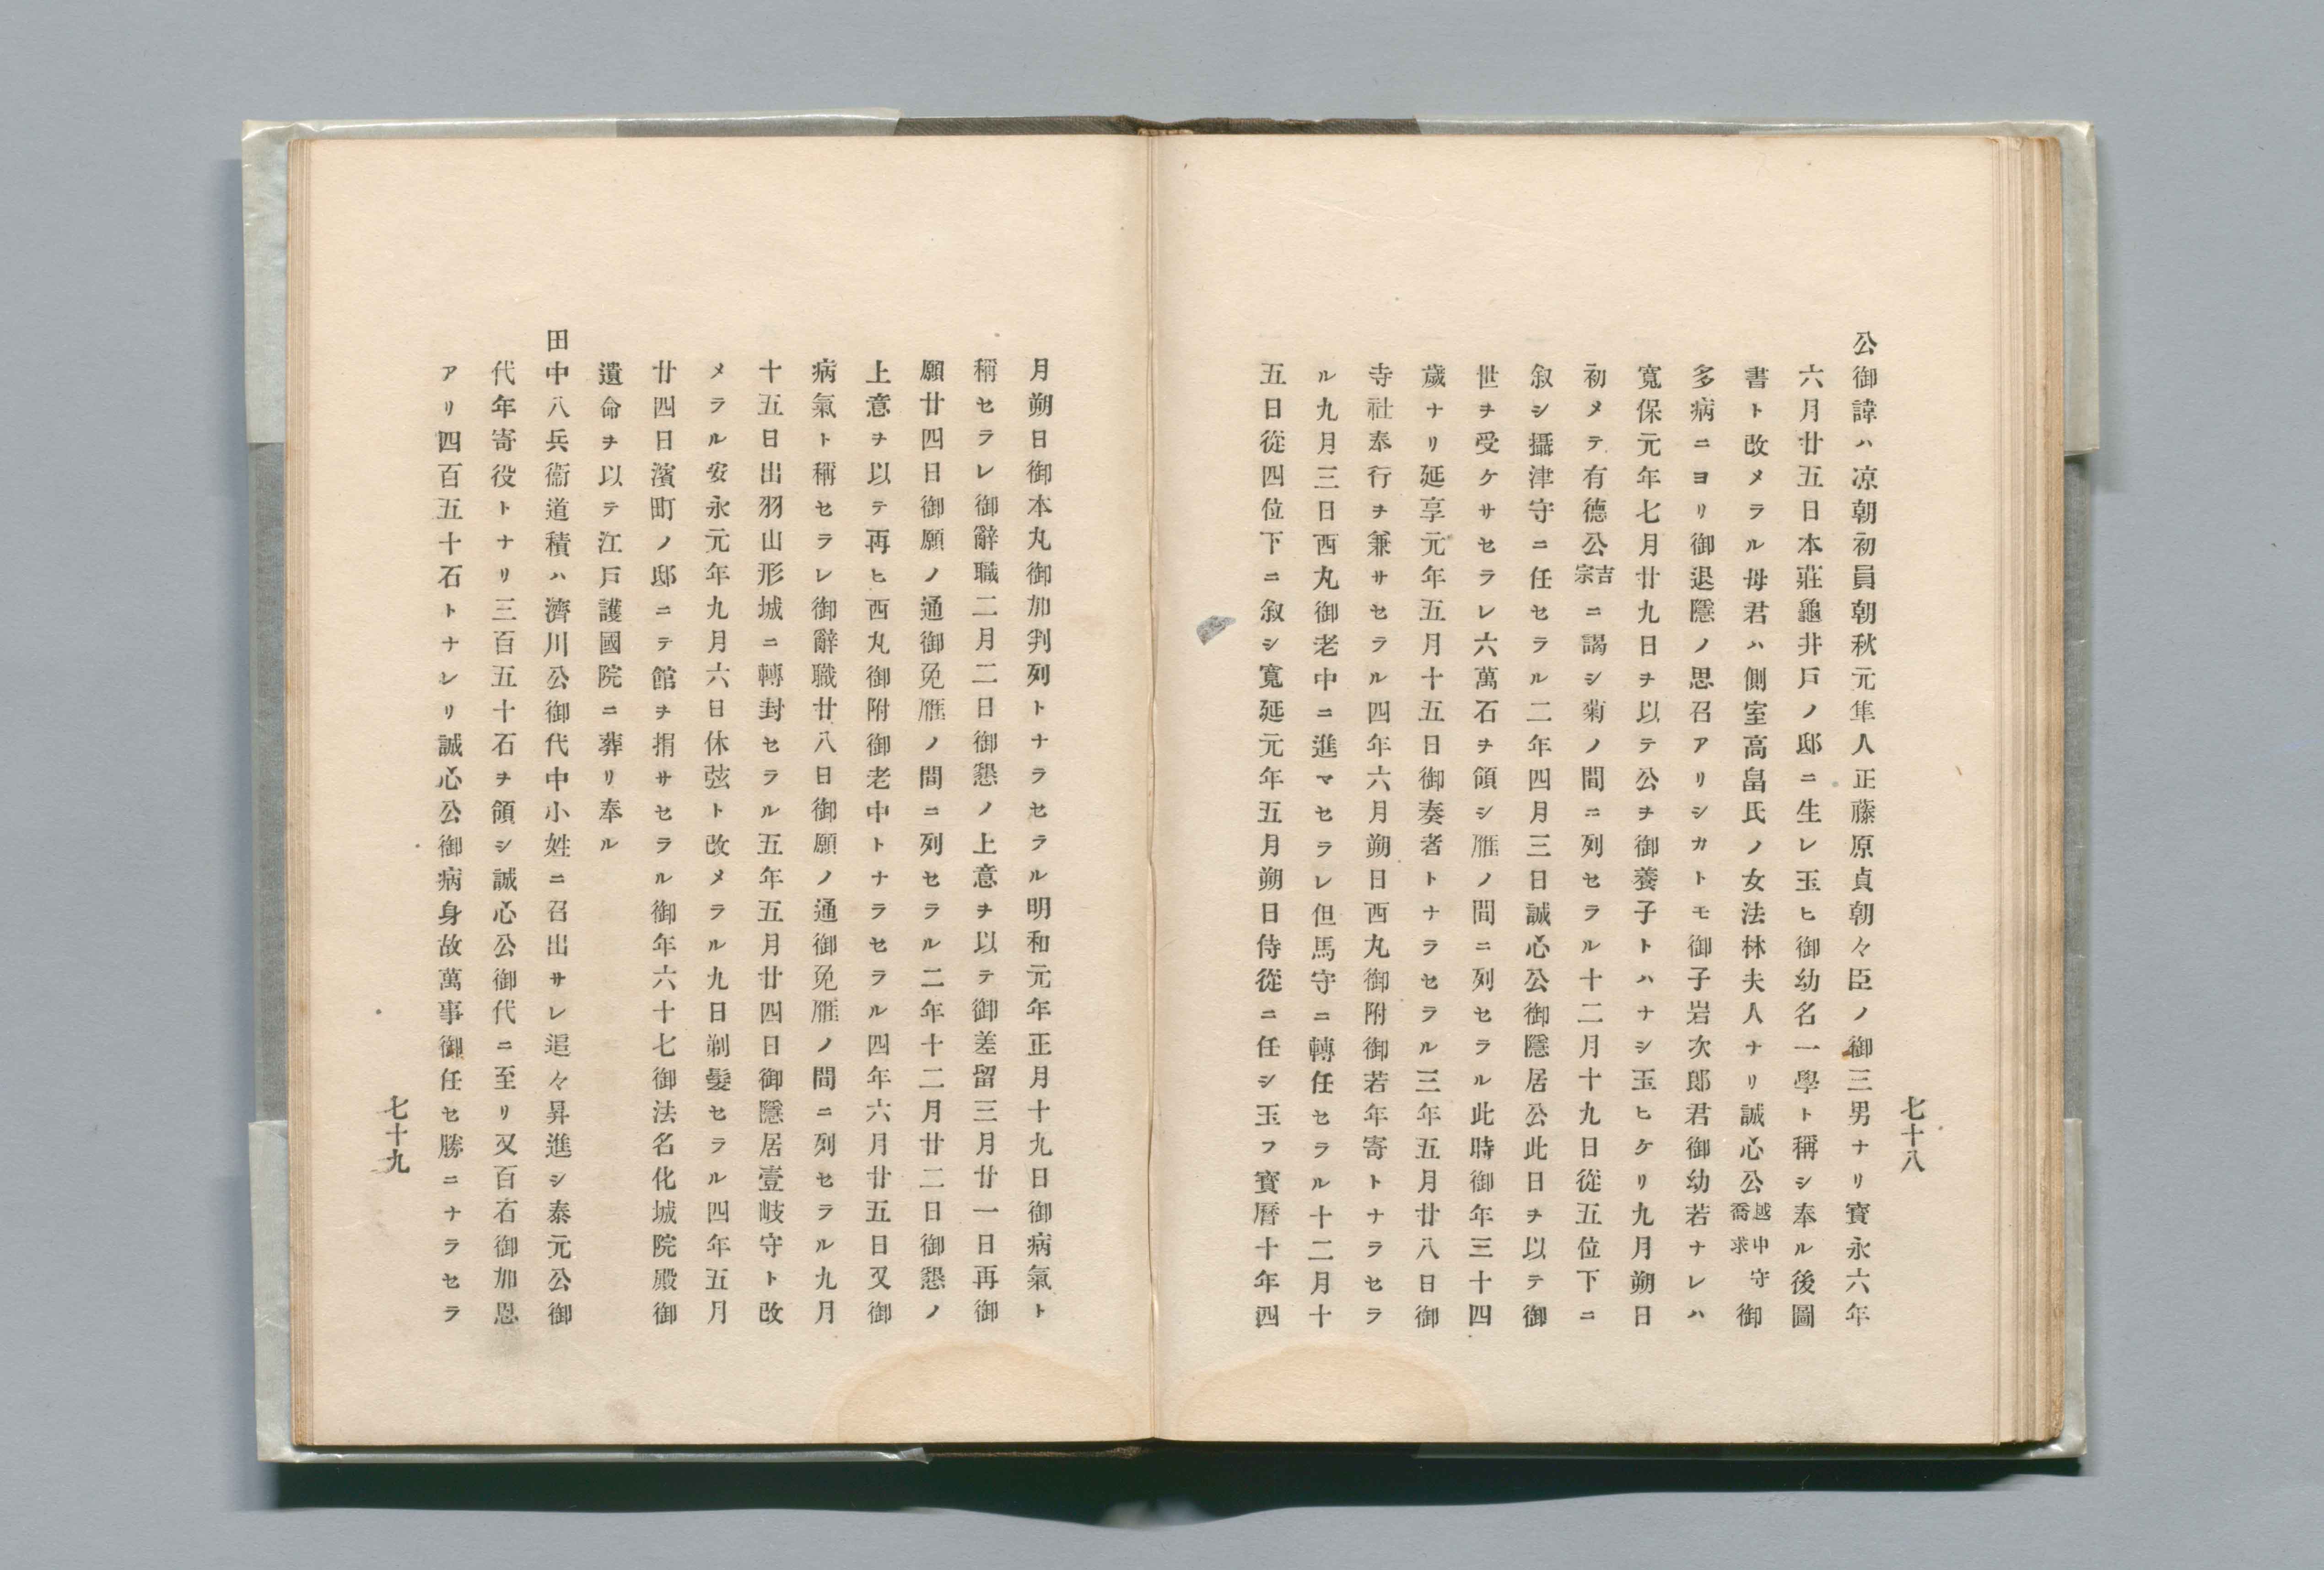 七十八
公御諱ハ凉朝初員朝秋元隼人正藤原貞朝々臣ノ御三男ナリ寳永六年
六月廿五日本莊龜井戸ノ邸ニ生レ玉ヒ御幼名一學ト稱シ奉ル後圖
書ト改メラル母君ハ側室高畠氏ノ女法林夫人ナリ誠心公越中守喬求御
多病ニヨリ御退隱ノ思召アリシカトモ御子岩次郎君御幼若ナレハ
寛保元年七月廿九日ヲ以テ公ヲ御養子トハナシ玉ヒケリ九月朔日
初メテ有德公吉宗ニ謁シ菊ノ間ニ列セラル十二月十九日從五位下ニ
叙シ攝津守ニ任セラル二年四月三日誠心公御隱居公此日ヲ以テ御
世ヲ受ケサセラレ六萬石ヲ領シ雁ノ間ニ列セラル此時御年三十四
歲ナリ延享元年五月十五日御奏者トナラセラル三年五月廿八日御
寺社奉行ヲ兼サセラル四年六月朔日西丸御附御若年寄トナラセラ
ル九月三日西丸御老中ニ進マセラレ但馬守ニ轉任セラル十二月十
五日從四位下ニ叙シ寛延元年五月朔日侍從ニ任シ玉フ寳曆十年四
月朔日御本丸御加判列トナラセラル明和元年正月十九日御病氣ト
稱セラレ御辭職二月二日御懇ノ上意ヲ以テ御差留三月廿一日再御
願廿四日御願ノ通御免雁ノ間ニ列セラル二年十二月廿二日御懇ノ
上意ヲ以テ再ヒ西丸御附御老中トナラセラル四年六月廿五日又御
病氣ト稱セラレ御辭職廿八日御願ノ通御免雁ノ間ニ列セラル九月
十五日出羽山形城ニ轉封セラル五年五月廿四日御隱居壹岐守ト改
メラル安永元年九月六日休弦ト改メラル九日剃髮セラル四年五月
廿四日濱町ノ邸ニテ館ヲ捐サセラル御年六十七御法名化城院殿御
遺命ヲ以テ江戸護國院ニ葬リ奉ル
田中八兵衞道積ハ濟川公御代中小姓ニ召出サレ追々昇進シ泰元公御
代年寄役トナリ三百五十石ヲ領シ誠心公御代ニ至リ又百石御加恩
アリ四百五十石トナレリ誠心公御病身故萬事御任セ勝ニナラセラ
七十九